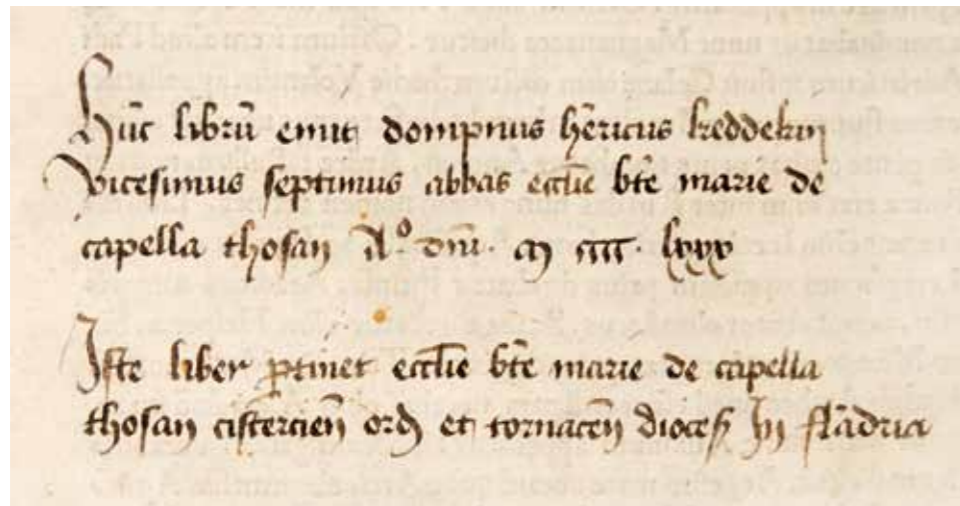 Hūc librū emit dompnus hēricus keddekin
vicesimus septimus abbas ecclīe btē marie de
capella thosan Aº dnī m cccc lxxx
Iste liber ptinet ecclīe btē marie de capella
thosan cisterciēn ord et tornacēn dioces In flādria